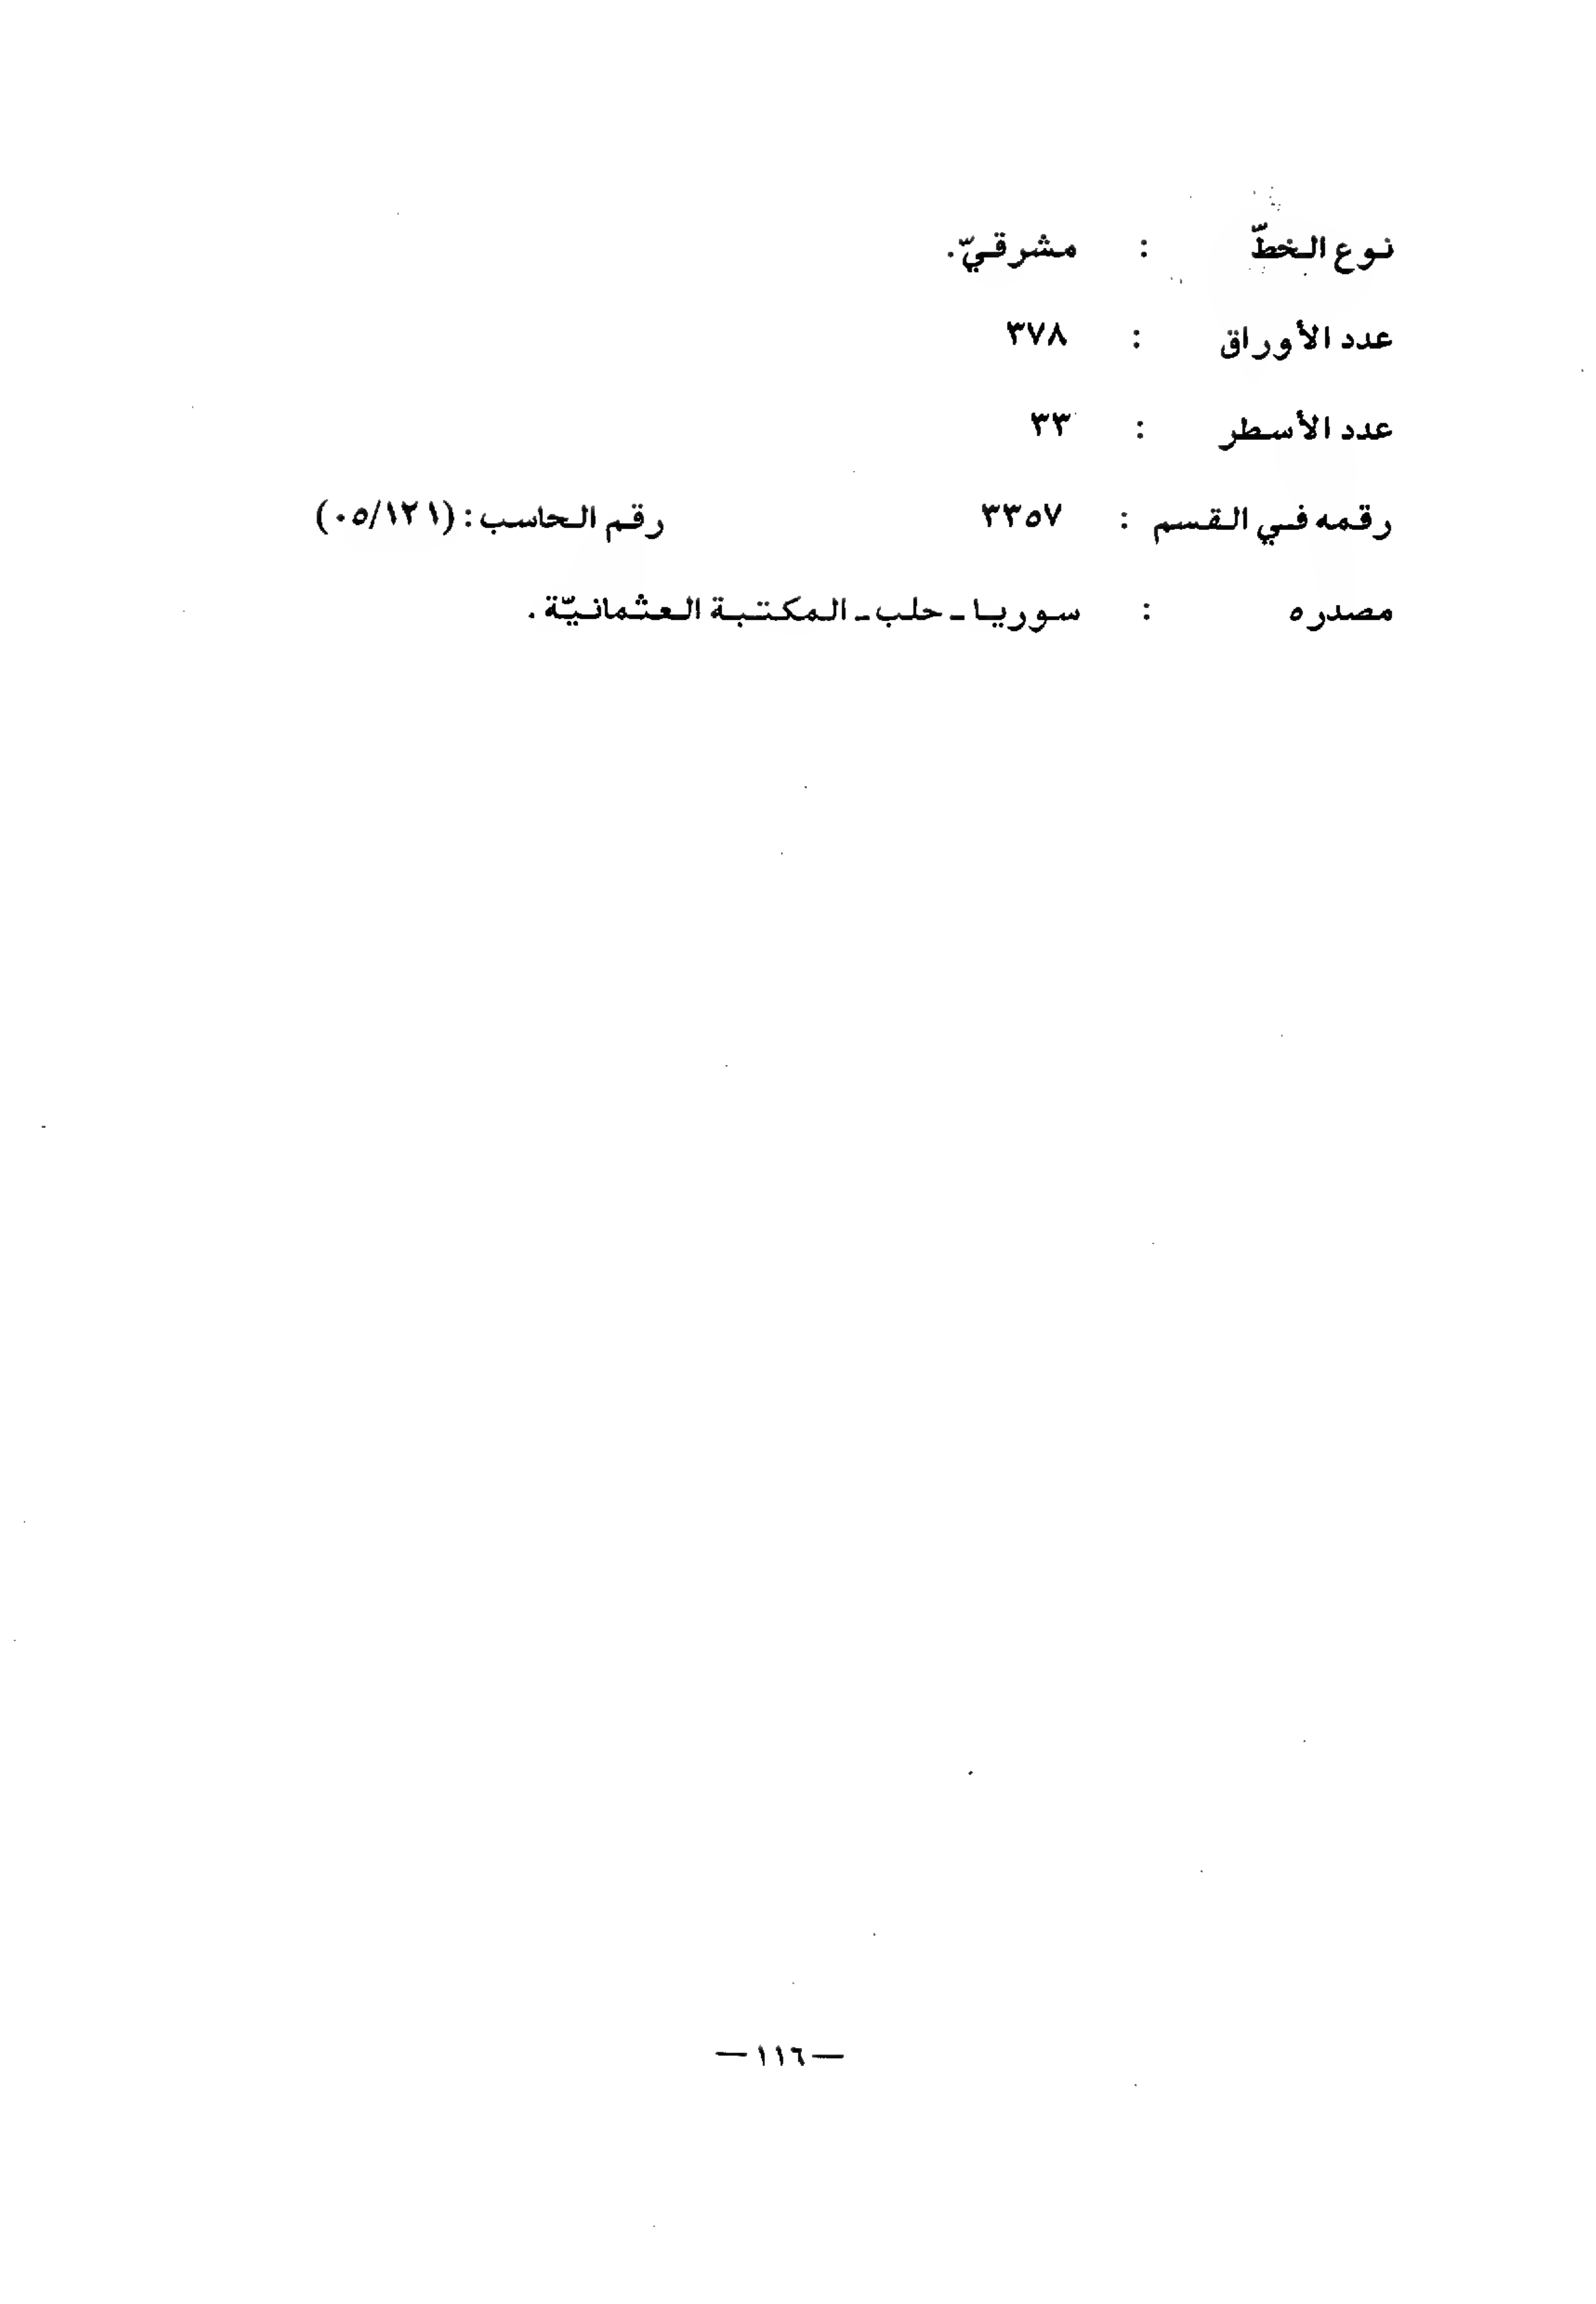 نوع الخطّ : مشرقيّ.
عدد الأوراق : ٣٧٨
عدد الأسطر : ٣٣
رقمه في القسم : ٣٣٥٧ رقم الحاسب : (٠٥/١٢١)
مصدره : سوريا ـ حلب ـ المكتبة العثمانيّة .
— ١١٦ —